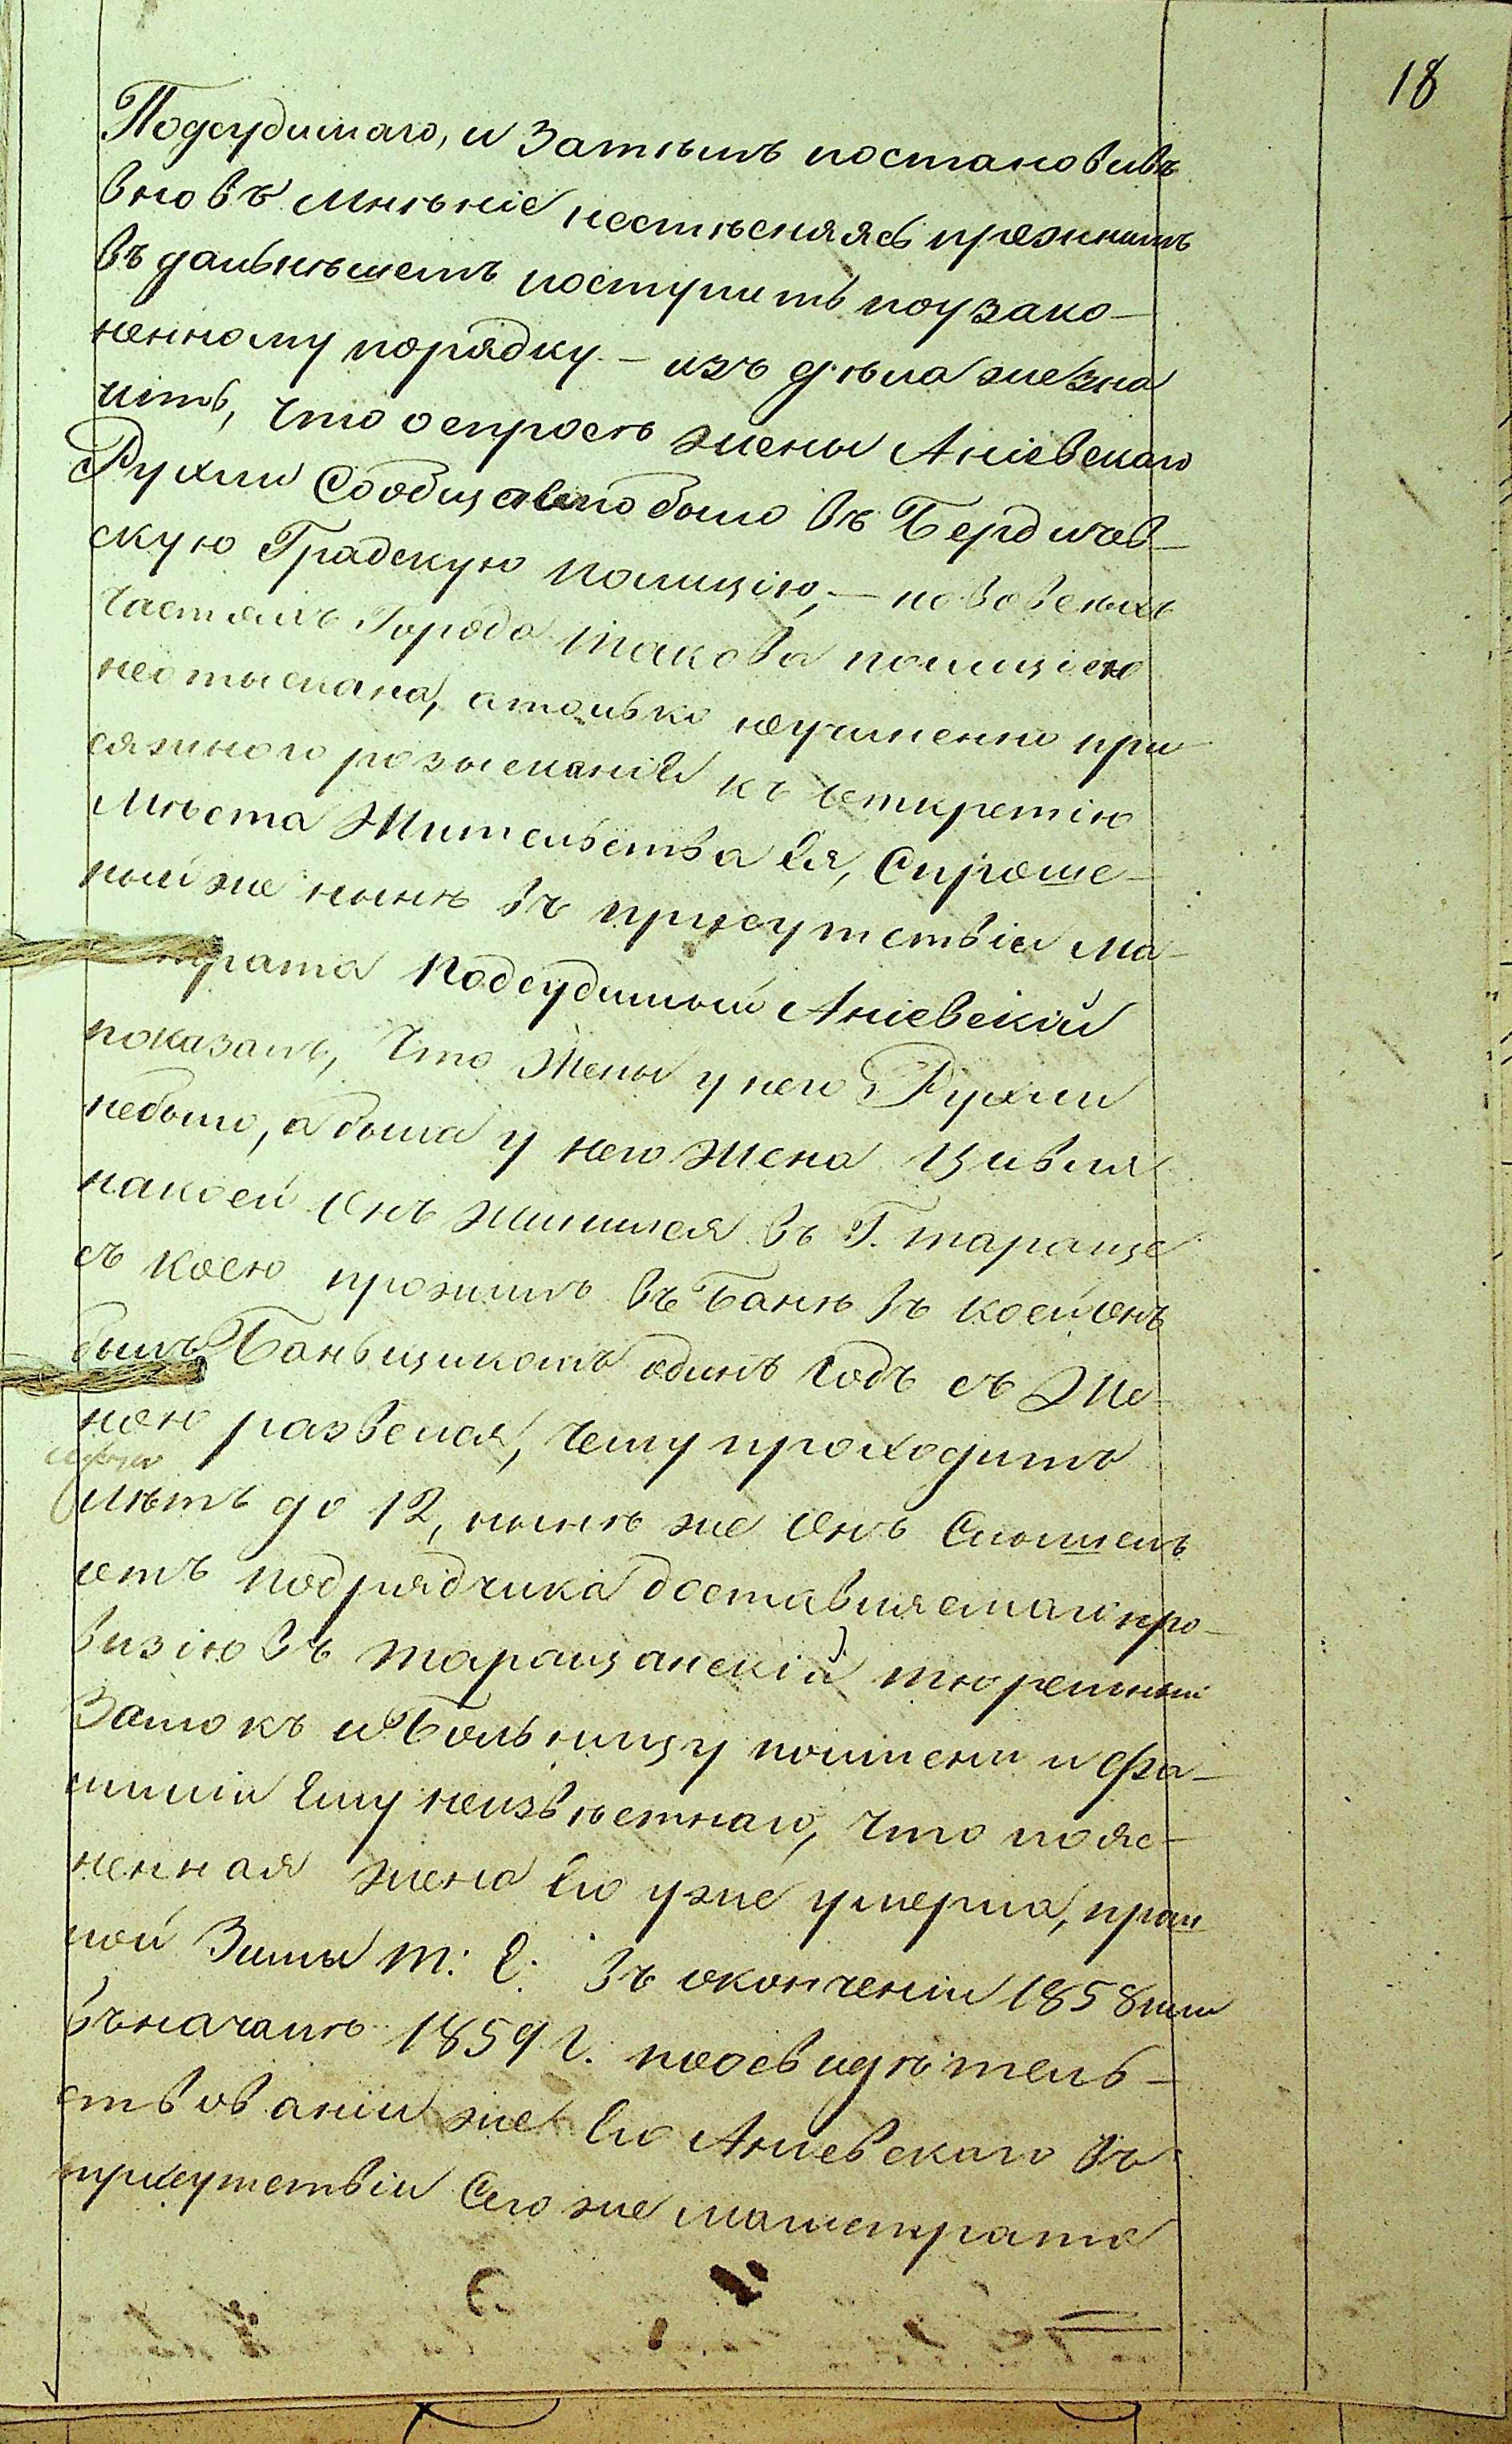 18
Подсудимаго, и затемъ постановивъ
вновь мнѣніе нестѣсняясь прежнимъ
въ дальнѣйшемъ поступить поузако-
ненному порядку — изъ дѣла же зна
читъ, что о спросѣ жены Аніевскаго
Рухли сообщаемо было въ Бердичев-
скую Градскую полицію, — пововсѣхъ
частямъ Города такова полиціею
неотыскана, атолько неучинено при-
сяжного розысканія къ откретію
мѣста жительства ея, Спроше-
ный же нынѣ въ присутствіи ма-
страта подсудимый Аніевскій
показалъ, что жены у него Рухли
небыло, а была у него жена Цивля
накоей онъ жинился въ Г. тараще
съ коею прожилъ въ Банѣ въ коей онъ
былъ Баньщикомъ одинъ годъ съ же-
ною развелся, чему проходитъ
лѣтъ до 12, нынѣ же онъ слышелъ
отъ подрядчика доставляемаго про-
визію въ таращанскій тюремный
Замокъ и Больницу поимени и фа-
миліи ему неизвѣстнаго, что пояс-
ненная жена его уже умерла, прош
лой Зимы т: е: въ окончаніи 1858 или
въначалѣ 1859 г. поосвидѣтель-
ствованіи же его Аніевскаго въ
присутствіи сего же магистрата